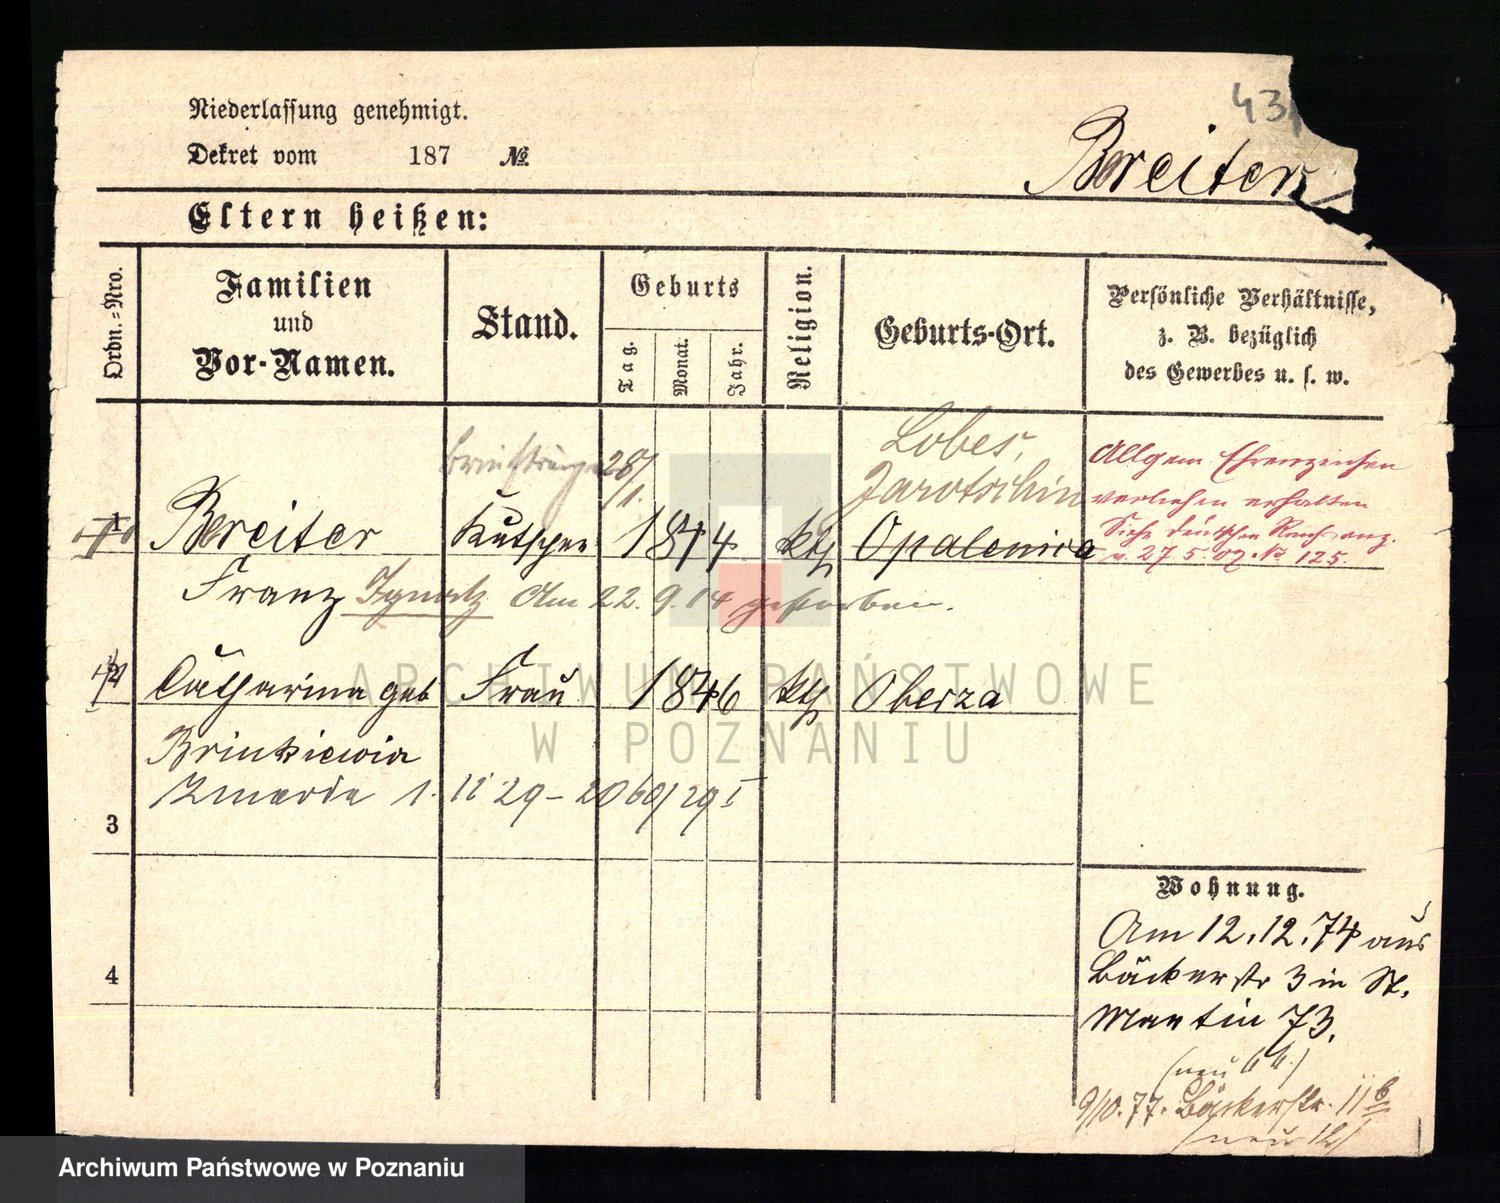 43
Niederlassung genehmigt.
Dekret vom 187 №
Bereiter
Eltern heißen:
Ordn.=Nro.
Familien
und
Vor-Namen.
Stand.
Geburts
Tag.
Monat.
Jahr.
Religion.
Geburts-Ort.
Persönliche Verhältnisse,
z. B. bezüglich
des Gewerbes u. s. w.
28/1.
Lobes,
Jarotschin
Allgem Ehrenzeichen
verliehen erhalten
Siehe deutschen
v. 27 5 07 No 125.
1 Bereiter Kutscher 1844 kth Opalenica
Franz Ignatz Am 22. 9. 14 gestorben.
2 Catharina geb Frau 1846 kth Oberza
Zmarła 1. 11 29 – 2060/29 I
3
4
Wohnung.
Am 12.12.74 aus
Bäckerstr 3 in St.
Martin 73.
(neu 66.)
9/10.77. Bäckerstr. 11b
(neu 12)
ARCHIWUM PAŃSTWOWE
W POZNANIU
Archiwum Państwowe w Poznaniu